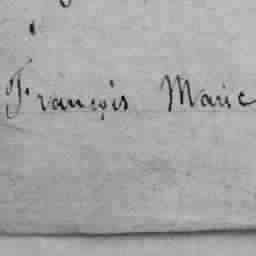 François Marie